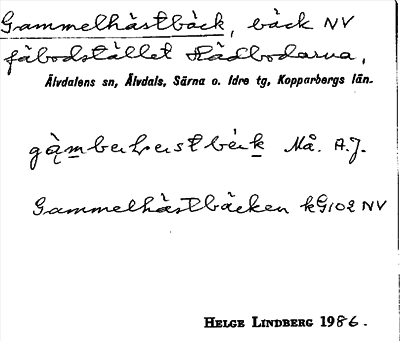 Gammelhästbäck, bäck NV
fäbodstället Rådbodarna,
Älvdalens sn, Älvdals, Särna o. Idre tg, Kopparbergs län.
Må. A.J.
Gammelhästbäcken kG102 NV
HELGE LINDBERG 1986.